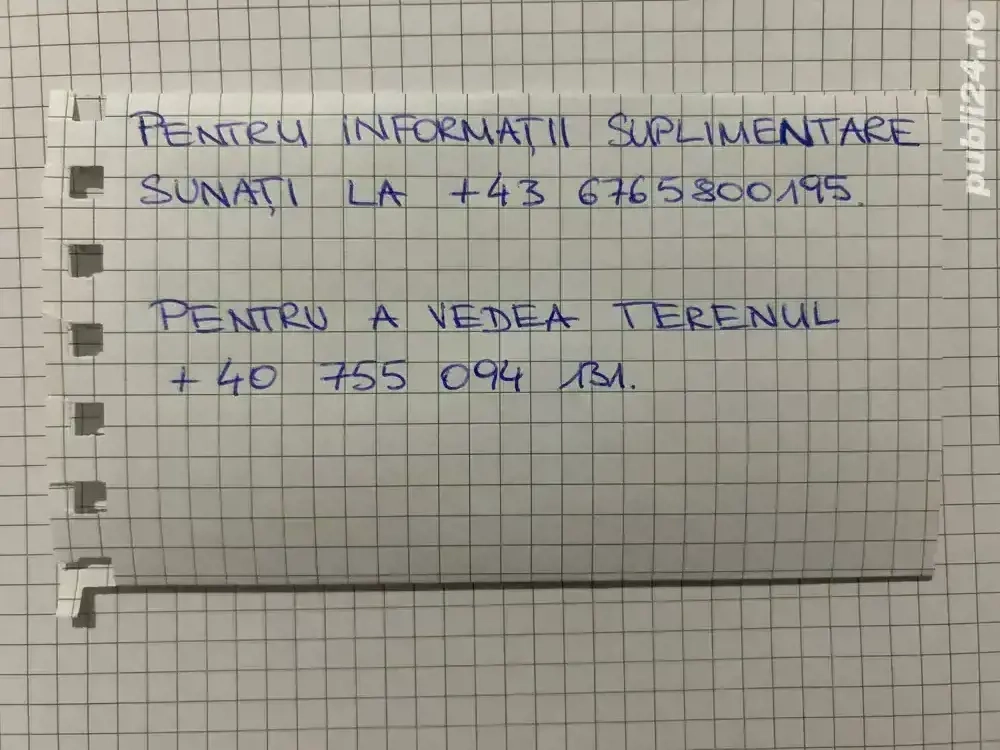 PENTRU INFORMAȚII SUPLIMENTARE
SUNAȚI LA +43 6765800195.
PENTRU A VEDEA TERENUL
+40 755 094 131.
publi24.ro